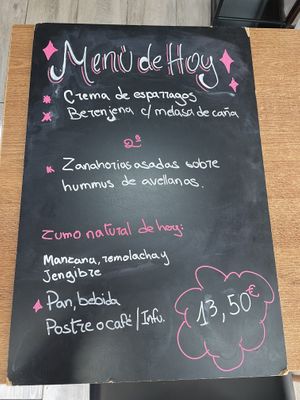 Menú de Hoy
Crema de esparragos
Berenjena c/ melasa de caña
2º
Zanahorias asadas sobre
hummus de avellanas.
Zumo natural de hoy:
Manzana, remolacha y
Jengibre
Pan, bebida
Postre o café / Infu.
13,50€